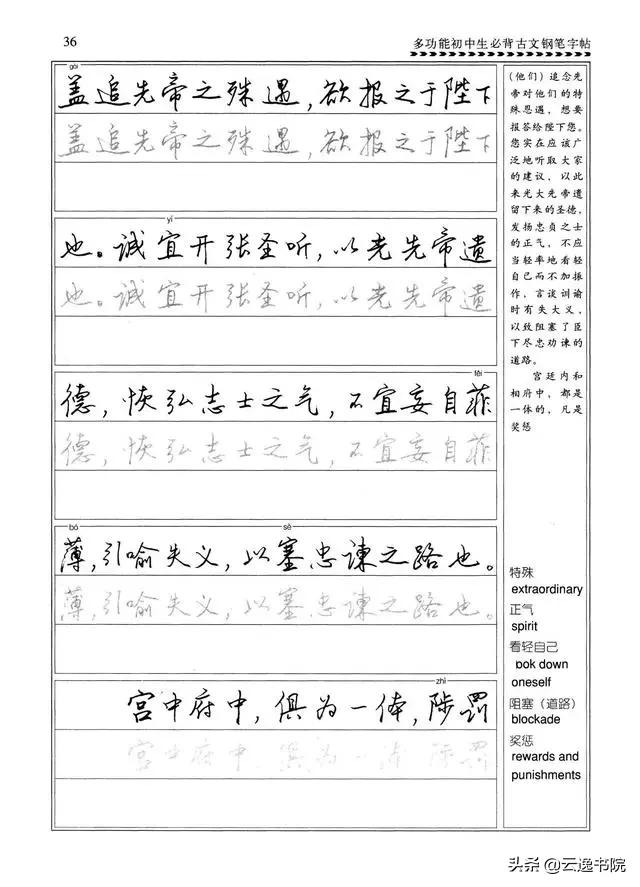 36
多功能初中生必背古文钢笔字帖
gài
盖追先帝之殊遇，欲报之于陛下
盖追先帝之殊遇，欲报之于陛下
yí
也。诚宜开张圣听，以光先帝遗
也。诚宜开张圣听，以光先帝遗
fěi
德，恢弘志士之气，不宜妄自菲
德，恢弘志士之气，不宜妄自菲
bó sè
薄，引喻失义，以塞忠谏之路也。
薄，引喻失义，以塞忠谏之路也。
zhì
宫中府中，俱为一体，陟罚
宫中府中，俱为一体，陟罚
（他们）追念先
帝对他们的特
殊恩遇，想要
报答给陛下您。
您实在应该广
泛地听取大家
的建议，以此
来光大先帝遗
留下来的圣德，
发扬忠贞之士
的正气，不应
当轻率地看轻
自己而不加操
作，言谈训谕
时有失大义，
以致阻塞了臣
下尽忠劝谏的
道路。
宫廷内和
相府中，都是
一体的，凡是
奖惩
特殊
extraordinary
正气
spirit
看轻自己
pok down
oneself
阻塞（道路）
blockade
奖惩
rewards and
punishments
头条 @云逸书院